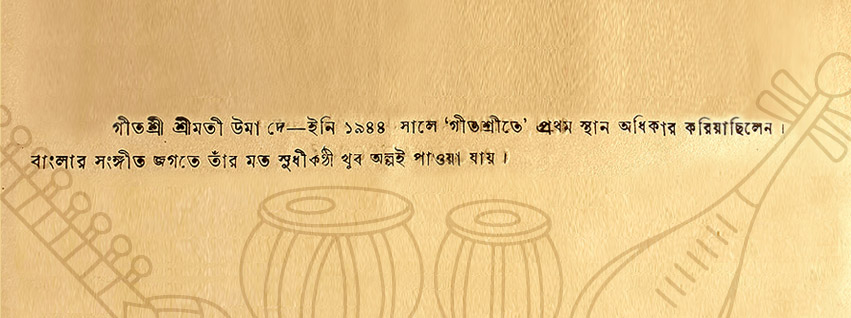 গীতশ্রী শ্রীমতী উমা দে—ইনি ১৯৪৪ সালে ‘গীতশ্রীতে’ প্রথম স্থান অধিকার করিয়াছিলেন।
বাংলার সংগীত জগতে তাঁর মত সুধীকণ্ঠী খুব অল্পই পাওয়া যায়।